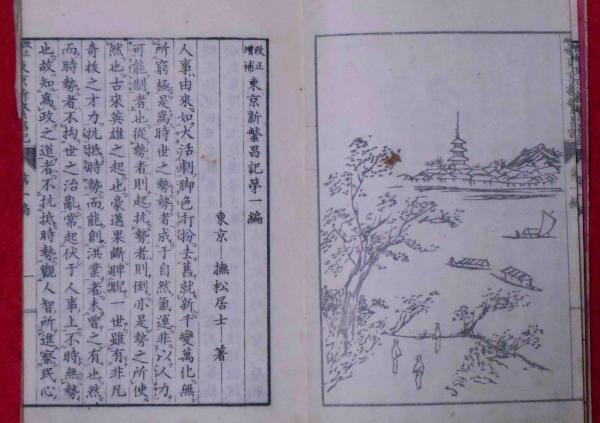 改正
増補 東京新繁昌記第一編
東京 撫松居士 著
人事由來如大活劇脚色打扮去舊就新千變萬化無
所窮極是爲時世之勢勢者成于自然氣運非以人力
可能制者也從勢者則起抗勢者則倒亦是勢之所使
然也古來英雄之起也豪邁果斷睥睨一世雖有非凡
奇抜之才力抗抵時勢而能創洪業者未曽之有也然
而時勢者不拘世之治亂常起伏于人事上不時無勢
也故知爲政之道者不抗抵時勢觀人智所進察民心
東京新繁昌記
一